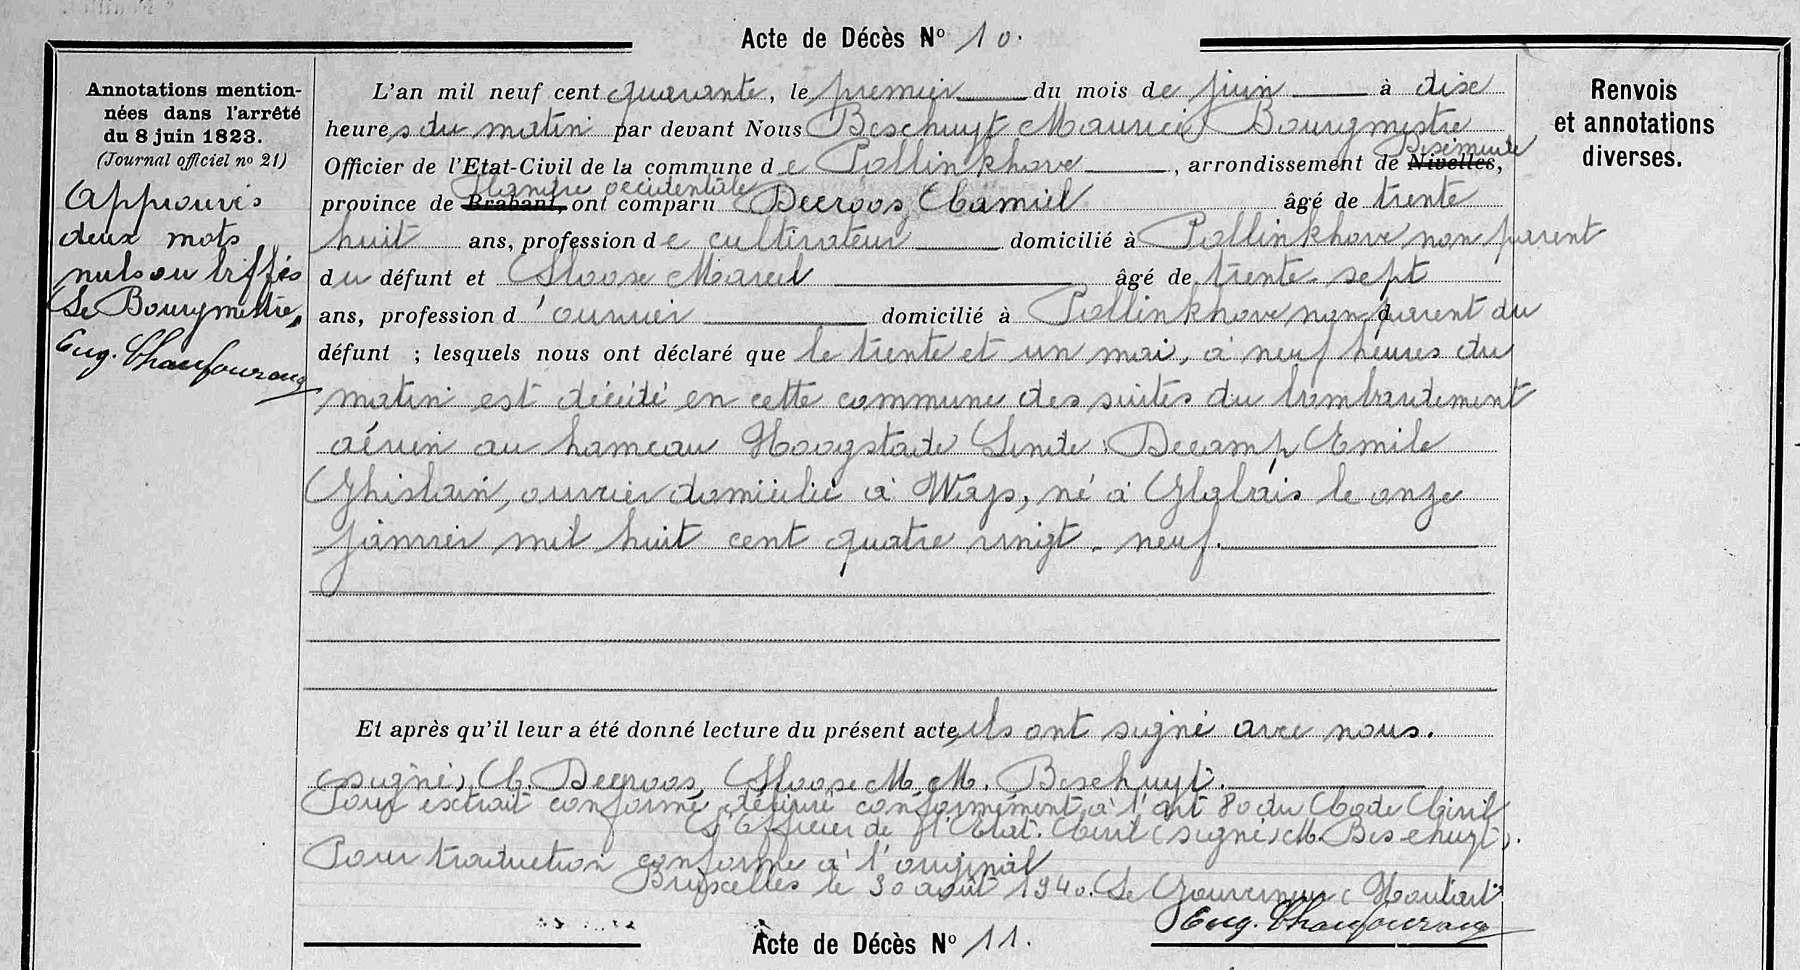 Acte de Décès Nº 10.
Annotations mention-
nées dans l'arrêté
du 8 juin 1823.
(Journal officiel nº 21)
Approuvés
deux mots
nuls ou biffés
Le Bourgmestre,
Eug. Chaufoureau
L'an mil neuf cent quarante, le premier du mois de juin à dix
heures du matin par devant Nous Beschuyt Maurice, Bourgmestre
Officier de l'Etat-Civil de la commune de Pollinkhove, arrondissement de Nivelles, Dixmude
province de Brabant, Flandre occidentale ont comparu Decroos, Camiel âgé de trente
huit ans, profession de cultivateur domicilié à Pollinkhove non parent
du défunt et Sloose Marcel âgé de trente-sept
ans, profession d'ouvrier domicilié à Pollinkhove, non parent du
défunt ; lesquels nous ont déclaré que le trente et un mai, à neuf heures du
matin est décédé en cette commune des suites du bombardement
aérien au hameau Hoogstade Linde : Decamp Emile
Ghislain, ouvrier domicilié à Ways, né à Glabais le onze
janvier mil huit cent quatre vingt-neuf.
Et après qu'il leur a été donné lecture du présent acte, ils ont signé avec nous.
(signé) C. Decroos, Sloose M. M. Beschuyt.
Pour extrait conforme délivré conformément à l'art 80 du Code Civil
L'Officier de l'Etat-Civil (signé) M. Beschuyt).
Pour traduction conforme à l'original
Bruxelles le 30 août 1940. Le Gouverneur ( Houtart
Eug. Chaufoureau
Renvois
et annotations
diverses.
Acte de Décès Nº 11.